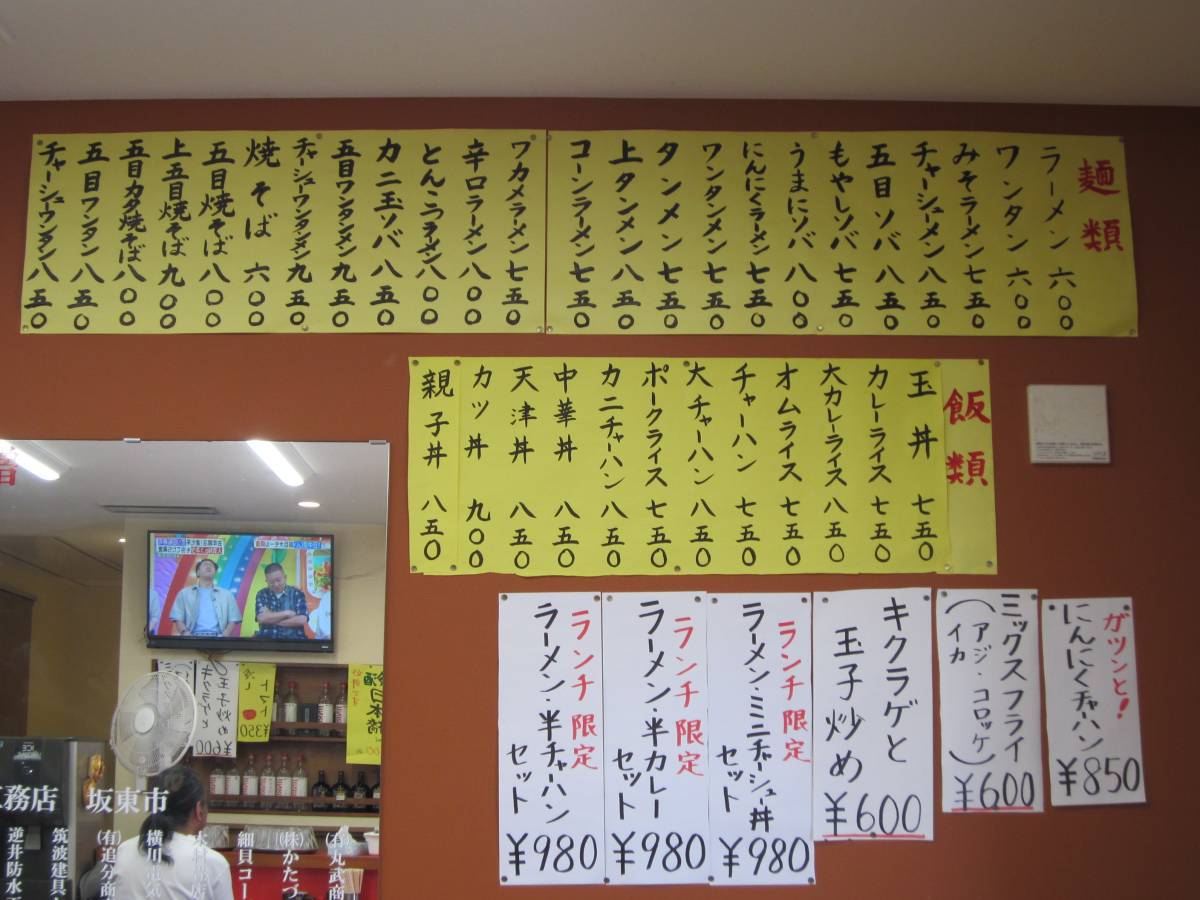 麺類
ラーメン 六〇〇
ワンタン 六〇〇
みそラーメン 七五〇
チャーシューメン 八五〇
五目ソバ 八五〇
もやしソバ 七五〇
うまにソバ 八〇〇
にんにくラーメン 七五〇
ワンタンメン 七五〇
タンメン 七五〇
上タンメン 八五〇
コーンラーメン 七五〇
ワカメラーメン 七五〇
辛口ラーメン 八〇〇
とんこつラーメン 八〇〇
カニ玉ソバ 八五〇
五目ワンタンメン 九五〇
チャーシューワンタンメン 九五〇
焼そば 六〇〇
五目焼そば 八〇〇
上五目焼そば 九〇〇
五目カタ焼そば 八〇〇
五目ワンタン 八五〇
チャーシュウワンタン 八五〇
飯類
玉丼 七五〇
カレーライス 七五〇
大カレーライス 八五〇
オムライス 七五〇
チャーハン 七五〇
大チャーハン 八五〇
ポークライス 七五〇
カニチャーハン 八五〇
中華丼 八五〇
天津丼 八五〇
カツ丼 九〇〇
親子丼 八五〇
ガツンと!
にんにくチャーハン
¥850
ミックスフライ
(アジ・コロッケ)
イカ
¥600
キクラゲと
玉子炒め
¥600
ランチ限定
ラーメン・ミニチャーシュー丼
セット
¥980
ランチ限定
ラーメン・半カレー
セット
¥980
ランチ限定
ラーメン・半チャーハン
セット
¥980
トマト
冷し
¥350
キクラゲと
玉子炒め
¥600
務店
坂東市
(有)丸武商
(株)かたづ
細貝コー
横川電気
(有)追分商
筑波建具
逆井防水